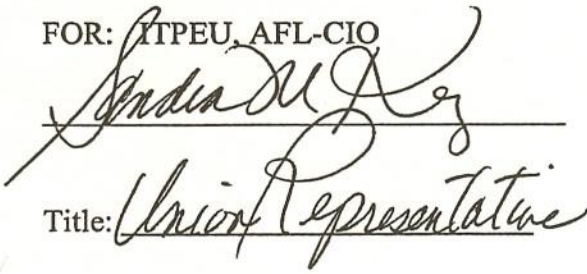 FOR: ITPEU, AFL-CIO
Sandra M
Title: Union Representative